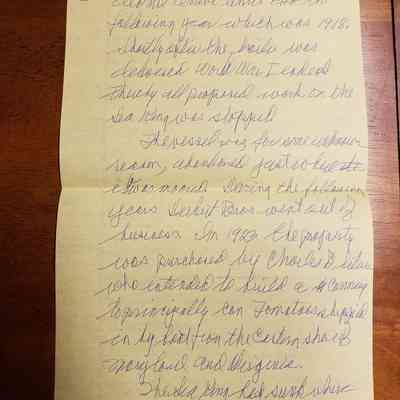 following year which was 1918.
Shortly after the boiler was
delivered World War I ended
thereby all proposed work on the
Sea King was stopped
The vessel was for some unknown
reason, abandoned just where
it was moored During the following
years Bros. went out of
business In 1923 the property
was purchased by Charles
who intended to build a Cannery
to principally can Tomatoes shipped
in by boat from the Eastern shore of
Maryland and Virginia.
The Sea King had sunk where